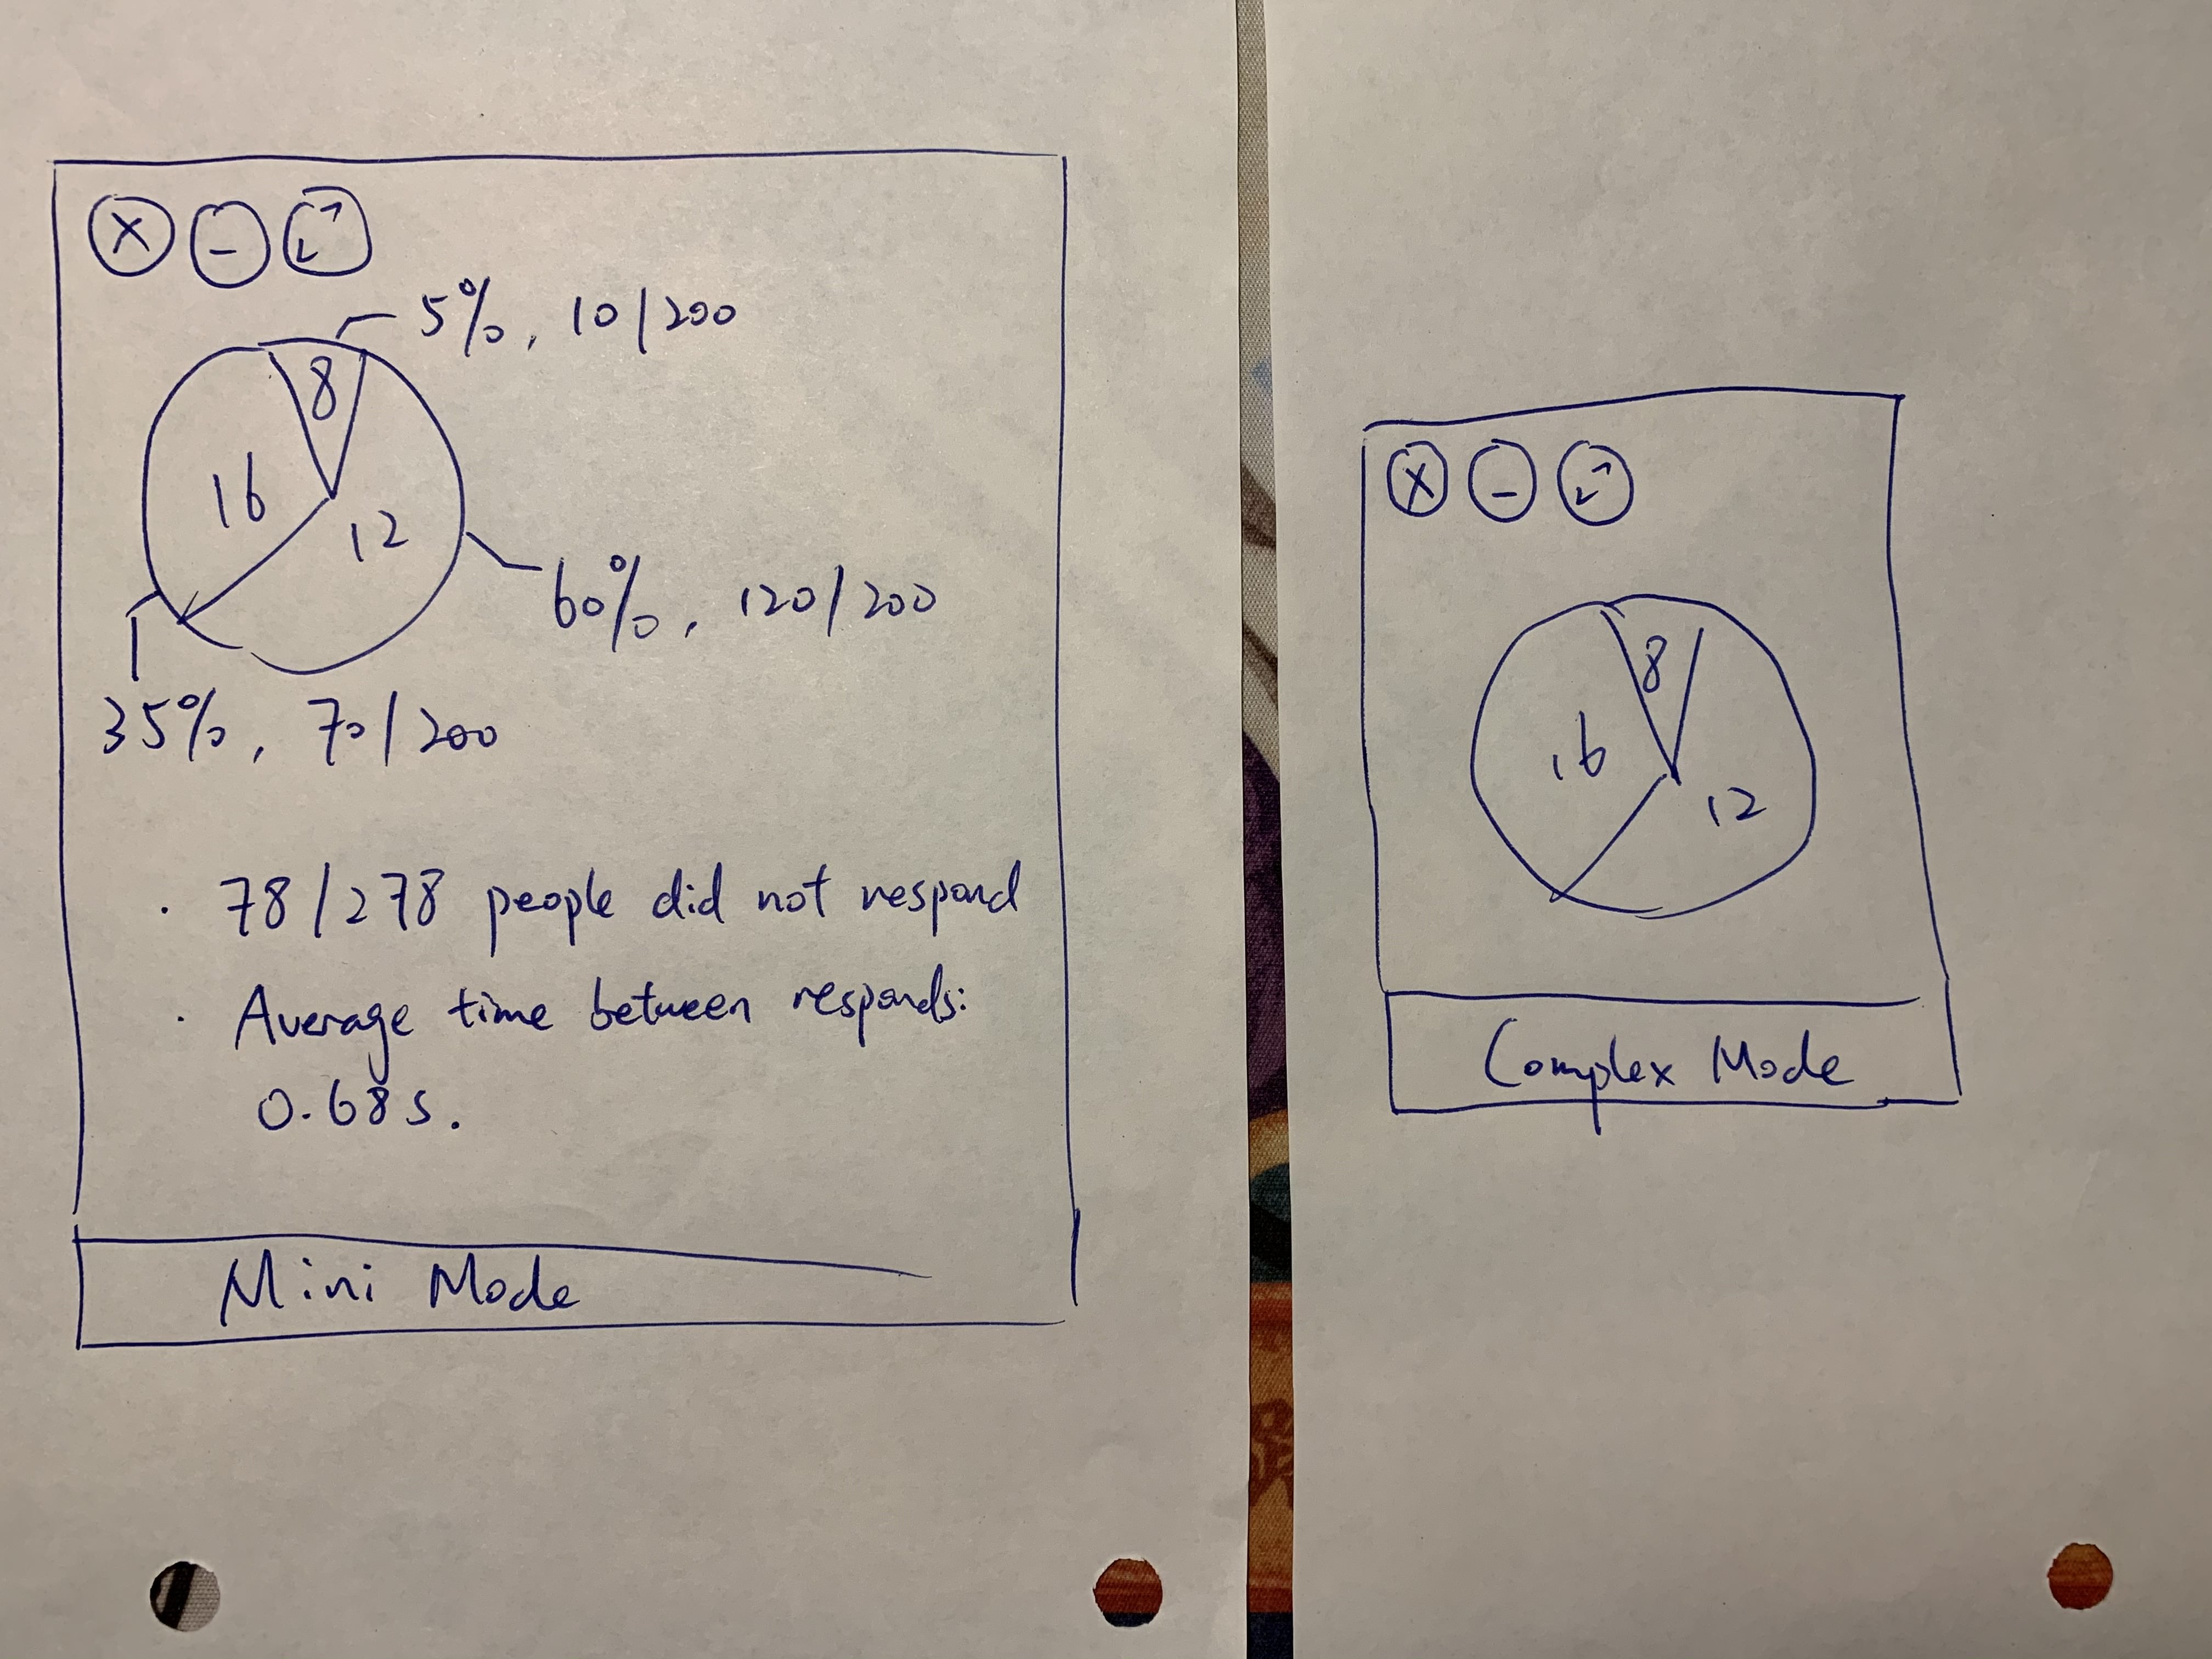 5%, 10/200
8
16
12
60%, 120/200
35%, 70/200
· 78/278 people did not respond
· Average time between responds:
0.68s.
Mini Mode
8
16
12
Complex Mode